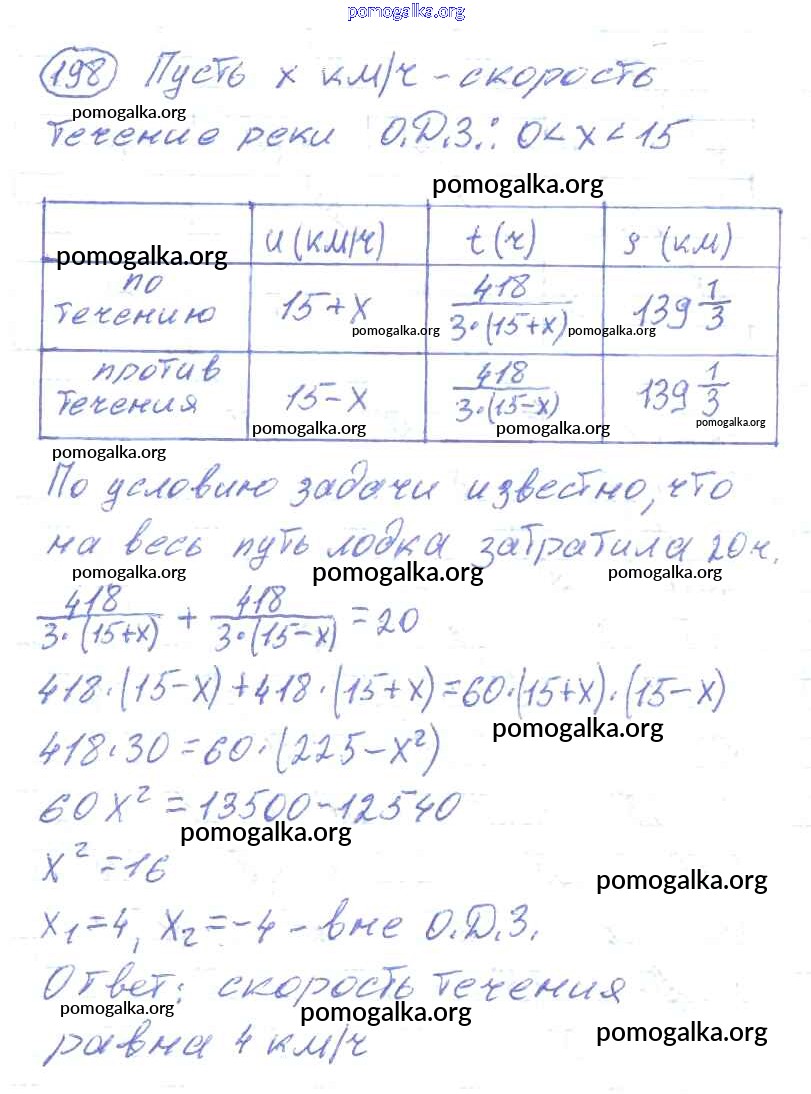 pomogalka.org
198 Пусть x км/ч - скорость
pomogalka.org
течение реки О.Д.З.: 0 < x < 15
pomogalka.org
u (км/ч) t (ч) s (км)
pomogalka.org
по течению 15+x 418/3·(15+x) 139 1/3
pomogalka.org pomogalka.org
против течения 15-x 418/3·(15-x) 139 1/3
pomogalka.org pomogalka.org pomogalka.org
pomogalka.org
По условию задачи известно, что
на весь путь лодка затратила 20ч.
pomogalka.org pomogalka.org pomogalka.org
418/3·(15+x) + 418/3·(15-x) = 20
418·(15-x)+418·(15+x)=60·(15+x)·(15-x)
pomogalka.org
418·30=60·(225-x²)
60x²=13500-12540
pomogalka.org
x²=16
pomogalka.org
x₁=4, x₂=-4 - вне О.Д.З.
Ответ: скорость течения
pomogalka.org pomogalka.org
pomogalka.org
равна 4 км/ч